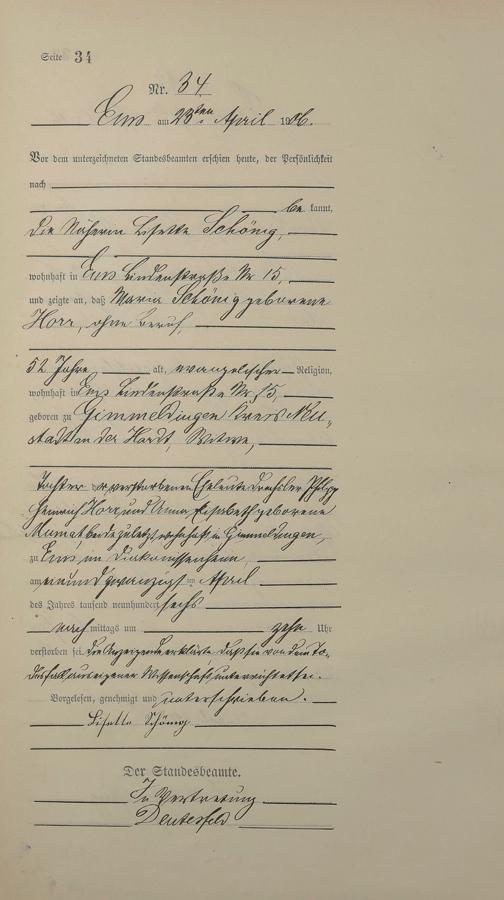 Seite 34
Nr. 34
Ems am 23ten April 1906.
Vor dem unterzeichneten Standesbeamten erschien heute, der Persönlichkeit
nach
be kannt,
die Näherin Lisette Schönig,
wohnhaft in Ems Lindenstraße Nr 15,
und zeigte an, daß Maria Schönig geborene
Horr, ohne Beruf,
52 Jahre, alt, evangelischer Religion,
wohnhaft in Ems Lindenstraße Nr. 15,
geboren zu Gimmeldingen Kreis Neu-
stadt an der Hardt, Witwe,
Tochter der verstorbenen Eheleute Drechsler Philipp
Heinrich Horr und Anna Elisabeth geborene
beide zuletzt wohnhaft in Gimmeldingen,
zu Ems im Diakonissenheim,
am neunundzwanzigst im April
des Jahres tausend neunhundert sechs
nach mittags um zehn Uhr
verstorben sei. Die Anzeigende erklärte daß sie von dem To-
desfall aus eigener Wissenschaft unterrichtet sei.
Vorgelesen, genehmigt und unterschrieben.
Lisette Schönig
Der Standesbeamte.
In Vertretung